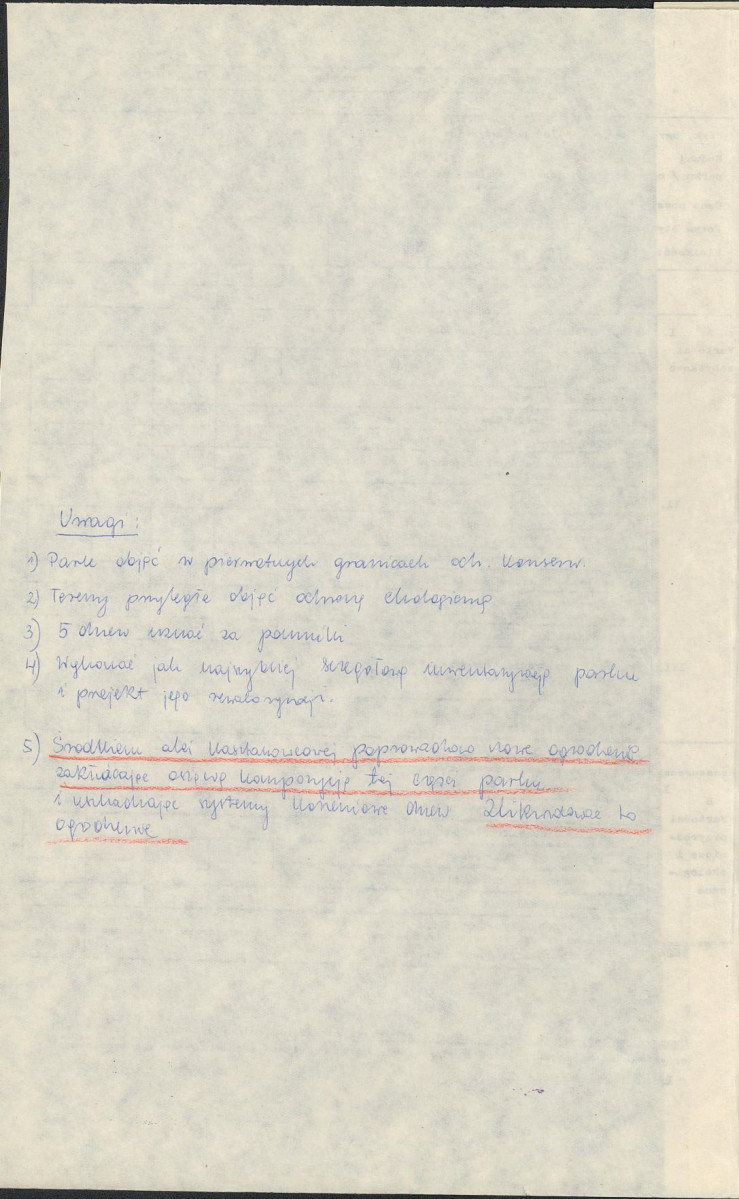 Uwagi:
1) Park objąć w pierwotnych granicach och. konserw.
2) Tereny przyległe objąć ochroną ekologiczną
3) 5 drzew uznać za pomniki
4) Wykonać jak najszybciej szczegółową inwentaryzację parku
i projekt jego rewaloryzacji.
5) Środkiem alei kasztanowcowej poprowadzono nowe ogrodzenie
zakłócające osiową kompozycję tej części parku
i uszkadzające systemy korzeniowe drzew Zlikwidować to
ogrodzenie